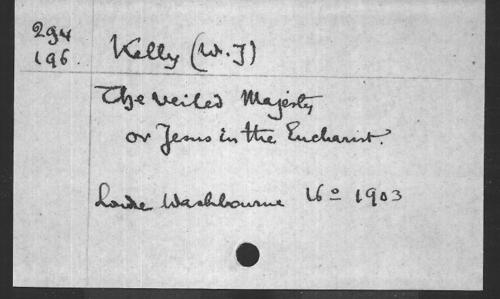 294
196.
Kelly (W. J)
The Veiled Majesty
or Jesus in the Eucharist.
Londe Washbourne 16º 1903